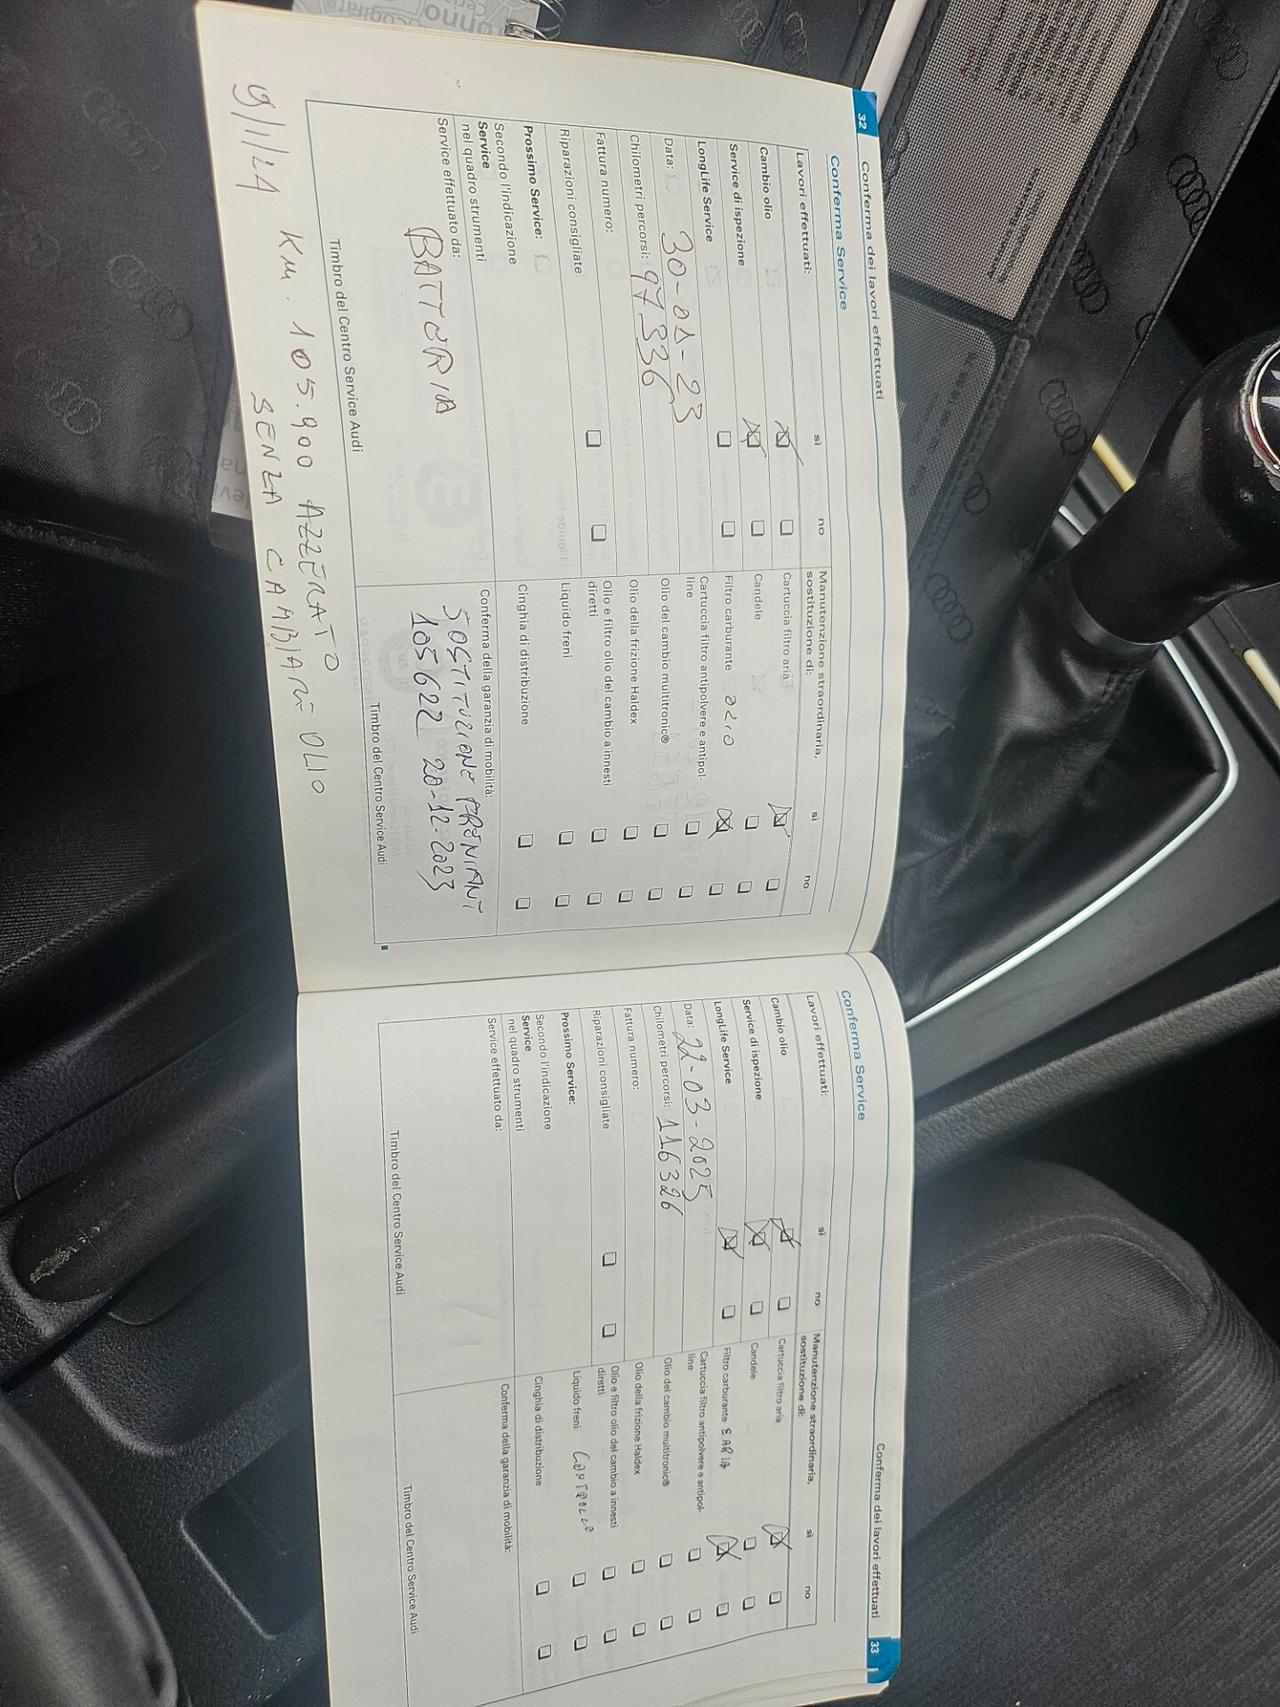 32
Conferma dei lavori effettuati
Conferma Service
Lavori effettuati:
sì
no
Cambio olio
Service di ispezione
LongLife Service
Data: 30-01-23
Chilometri percorsi: 97336
Fattura numero:
Riparazioni consigliate
Prossimo Service:
Secondo l'indicazione
Service
nel quadro strumenti
Service effettuato da:
BATTERIA
Timbro del Centro Service Audi
Manutenzione straordinaria,
sostituzione di:
sì
no
Cartuccia filtro aria
Candele
Filtro carburante OLIO
Cartuccia filtro antipolvere e antipol-
line
Olio del cambio multitronic®
Olio della frizione Haldex
Olio e filtro olio del cambio a innesti
diretti
Liquido freni
Cinghia di distribuzione
Conferma della garanzia di mobilità:
SOSTITUZIONE
105622 20-12-2023
Timbro del Centro Service Audi
9/1/24 KM. 105.900 AZZERATO
SENZA CAMBIARE OLIO
Conferma dei lavori effettuati
33
Conferma Service
Lavori effettuati:
sì
no
Cambio olio
Service di ispezione
LongLife Service
Data: 22-03-2025
Chilometri percorsi: 116326
Fattura numero:
Riparazioni consigliate
Prossimo Service:
Secondo l'indicazione
Service
nel quadro strumenti
Service effettuato da:
Timbro del Centro Service Audi
Manutenzione straordinaria,
sostituzione di:
sì
no
Cartuccia filtro aria
Candele
Filtro carburante E ARIA
Cartuccia filtro antipolvere e antipol-
line
Olio del cambio multitronic®
Olio della frizione Haldex
Olio e filtro olio del cambio a innesti
diretti
Liquido freni CONTROLLO
Cinghia di distribuzione
Conferma della garanzia di mobilità:
Timbro del Centro Service Audi